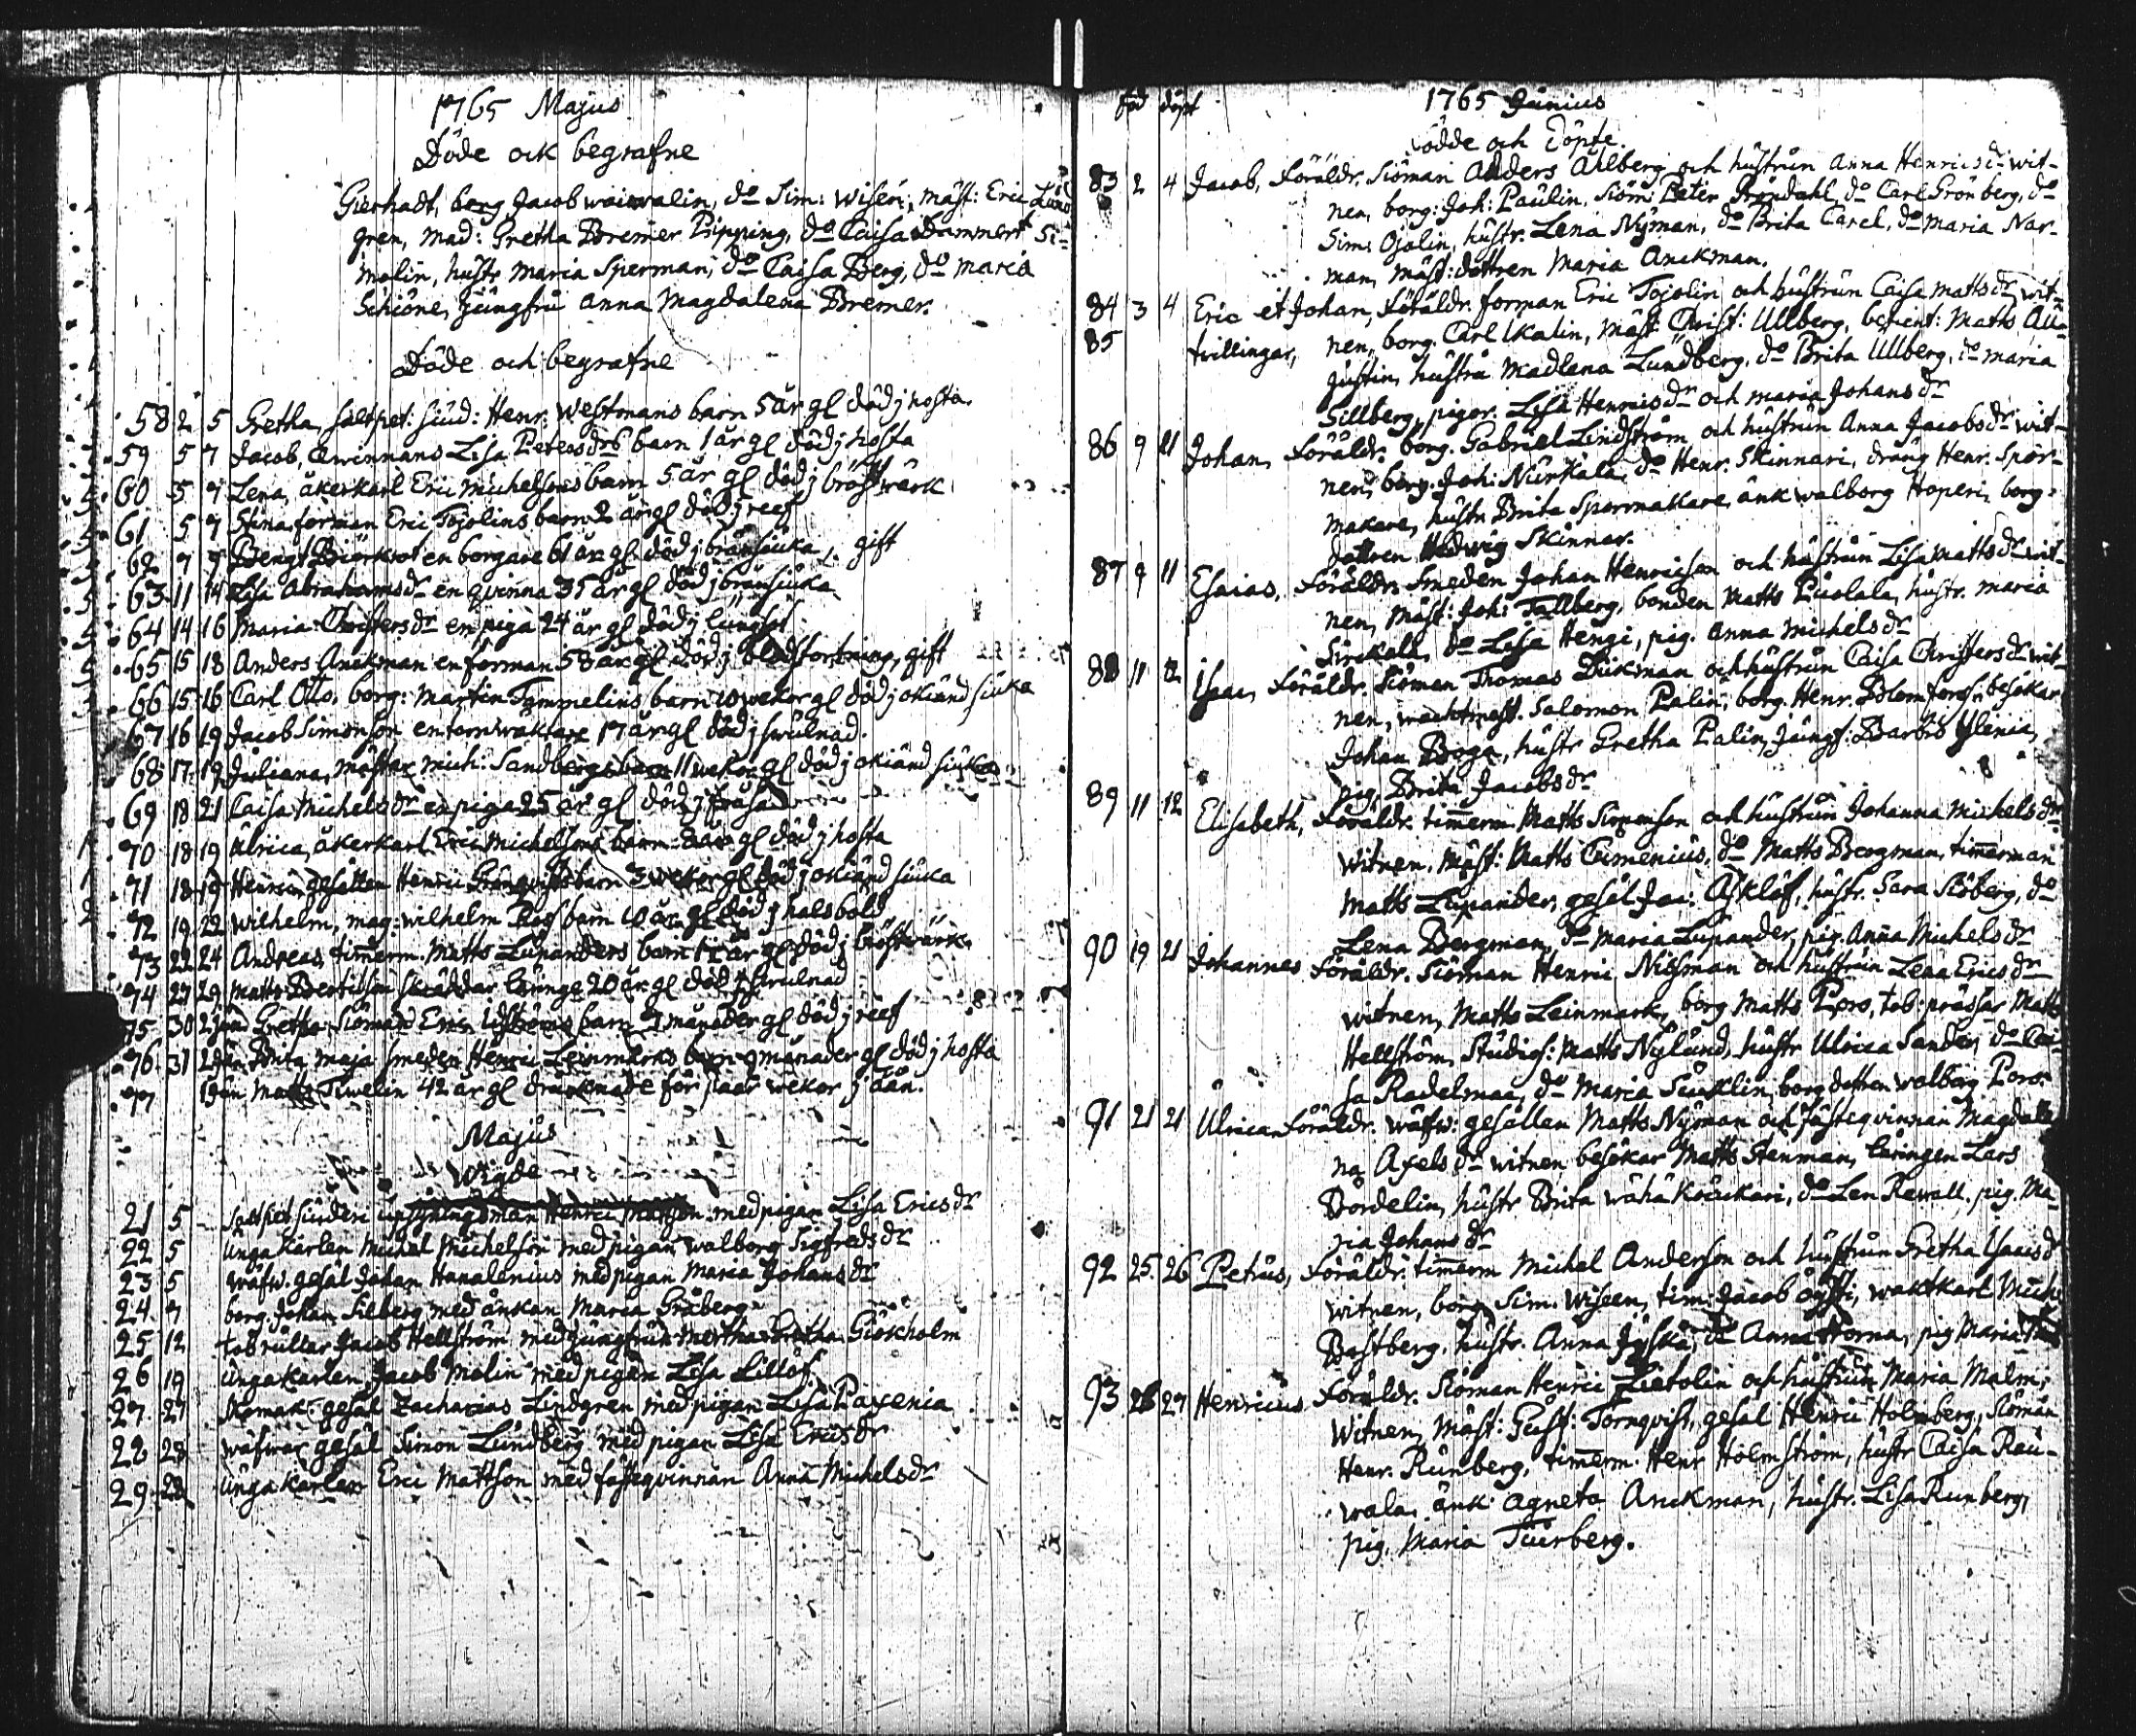 1765 Majus
Döde ock begrafne
Gierhadt, borg Jacob waiwalin, do Sim: Wisen, mäst: Eric Lind
gren, mad: Gretha Bremer Pipping, do Caisa Dammert Si-
molin, hustr Maria Sperman, do Caisa Berg, do Maria
Schiöne, Jungfru Anna Magdalena Bremer.
Döde och begrafne
58 2 5 Gretha, saltpet: siud: Henr: Westmans barn 5 år gl död j hosta
59 5 7 Jacob, Qwinnans Lisa Petersdrs barn 1 år gl död j hosta
60 5 7 Lena, åkerkarl Eric Michelsons barn 5 år gl död j bröstwärk
61 5 7 Stina, forman Eric Tojolins barn 2 år gl död j reef
62 7 9 Bengt Biörkrot en borgare 61 år gl död j brånsiuka, gift
63 11 14 Lisa Abrahamsdr en qvinna 35 år gl död j brånsiuka
64 14 16 Maria Christersdr en piga 24 år gl död j lungsot
65 15 18 Anders Anckman en forman 58 år gl död j blodstörtning, gift
66 15 16 Carl Otto, borg: Martin Tammelins barn 10 wekor gl död j okiänd siuka
67 16 19 Jacob Simonson en tornwaktare 17 år gl död j swulnad
68 17 19 Juliana, mästar Mich: Sandbergs barn 11 wekor gl död j okiänd siuka
69 18 21 Caisa Michelsdr en piga 25 år gl död j fråsa
70 18 19 Ulrica, åkerkarl Eric Michelsons barn 2 år gl död j hosta
71 18 19 Henric, gesällen Henric Granqvists barn 3 wekor gl död j okiänd siuka
72 19 22 Wilhelm, mag: Wilhelm Ross barn 10 år gl död j halsböld
73 22 24 Andreas, timerm. Matts Lupanders barn 1 år gl död j bröstwärk
74 27 29 Matts Bertilson skräddar lärunge 20 år gl död j swulnad
75 30 2 jun Gretha Siöman Eric barn 7 månader gl död j reef
76 31 2 jun Brita Maja smeden Henric Leinmarks barn 9 månader gl död j hosta
77 1 Jun Matts Tiwelin 42 år gl drunknade för paar wekor j åån.
Majus
Wigde
21 5 saltpet siuderi med pigan Lisa Ericsdr
22 5 unga Karlen Michel Michelson med pigan Walborg Sigfredsdr
23 5 wäfw. gesäl Johan Hanalenius med pigan Maria Johansdr
24 7 borg. Johan Silberg med änkan Maria Gråberg
25 12 tob ruller Jacob Hellström med Jungfrun Mertha Gretha Giökholm
26 19 unga Karlen Jacob Molin med pigan Lisa Lillöf
27 27 skomak: gesäl Zacharias Lindgren med pigan Lisa Paxenia
28 28 wäfwar gesäl Simon Lundberg med pigan Lisa Ericsdr
29 28 unga Karlen Eric Mattson med fästeqvinnan Anna Michelsdr
föd döpt 1765 Junius
födde och döpte.
83 2 4 Jacob, Föräldr. Siöman Anders Ahlberg och hustrun Anna Henricsdr wit-
nen, borg: Joh: Paulin, Siöm: Peter Brendahl, do Carl Grönberg, do
Sim: Ojalin, hustr. Lena Nyman, do Brita Carel, do Maria Nar-
man, mäst: dottren Maria Anckman.
84 3 4 Eric et Johan, Föräldr. forman Eric Tojolin och hustrun Caisa Mattsdr, wit-
85 twillingar, nen, borg. Carl Ikalin, Mäst: Christ: Ullberg, betient: Matts Au-
gustin, hustru Madlena Lundberg, do Brita Ullberg, do Maria
Sillberg, pigor. Lisa Henricsdr och Maria Johansdr
86 9 11 Johan, Föräldr. borg. Gabriel Lindström och hustrun Anna Jacobsdr wit-
nen, borg. Joh: Nurkala, do Henr. Skinnari, dräng Henr. Spor-
makare, hustr. Brita Spormakare, änk Walborg Hoperi, borg:
dottren Hedwig Skinnar.
87 9 11 Esaias, Föräldr. Smeden Johan Henricson och hustrun Lisa Mattsdr wit-
nen, Mäst: Joh: Tallberg, bonden Matts Puolala, hustr. Maria
Sirickala, do Lisa Hengi, pig. Anna Michelsdr
88 11 12 Isaac, Föräldr. Siöman Thomas Dickman och hustrun Caisa Christersdr wit-
nen, wachtmest. Salomon Palin, borg. Henr. Blomfors, besökar
Johan Boga, hustr Gretha Palin, Jungf: Barbro Ylenia,
pig. Brita Jacobsdr
89 11 12 Elisabeth, Föräldr. timerm. Matts Simonson och hustrun Johanna Michelsdr
witnen, Mäst: Matts Cumenius, do Matts Bergman, timerman
Matts Lupander, gesäl Jac: Asklöf, hustr. Sara Siöberg, do
Lena Bergman, do Maria Lupander, pig. Anna Michelsdr
90 19 21 Johannes Föräldr. Siöman Henric Nilsman och hustrun Lena Ericsdr
witnen, Matts Leinmark, borg Matts Poro, tob: prässar Matts
Hellström, Studios: Matts Nylund, hustr Ulrica Sander, do Cai-
sa Radelmaa, do Maria Sucklin, borg dottren Walborg Poro.
91 21 21 Ulrica Föräldr. wäfw: gesällen Matts Nyman och fästeqvinnan Magdale-
na Axelsdr witnen besökar Matts Stenman, läringen Lars
Bordelin, hustr Brita Wähä Kouckari, do Len Rewall. pig. Ma-
ria Johansdr
92 25 26 Petrus, Föräldr. timerm Michel Anderson och hustrun Gretha Isacsdr
witnen, borg. Sim. Wiseen, tim: Jacob öysti, waktkarl Miche
Bastberg, hustr. Anna Jyskä, do Anna Horna, pig Maria
93 26 27 Henricus Föräldr. Siöman Henric Lietolin och hustrun Maria Malm,
Witnen, Mäst: Gust: Tornqvist, gesäl Henric Holmberg, Siöman
Henr. Runberg, timerm. Henr Holmström, hustr Caisa Rau-
wala, änk Agneta Anckman, hustr. Lisa Runberg,
pig. Maria Tuurberg.